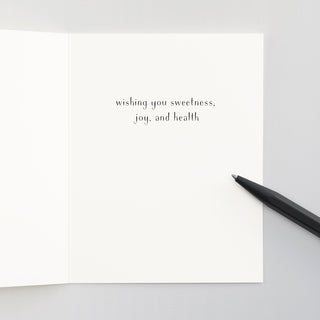 wishing you sweetness,
joy, and health